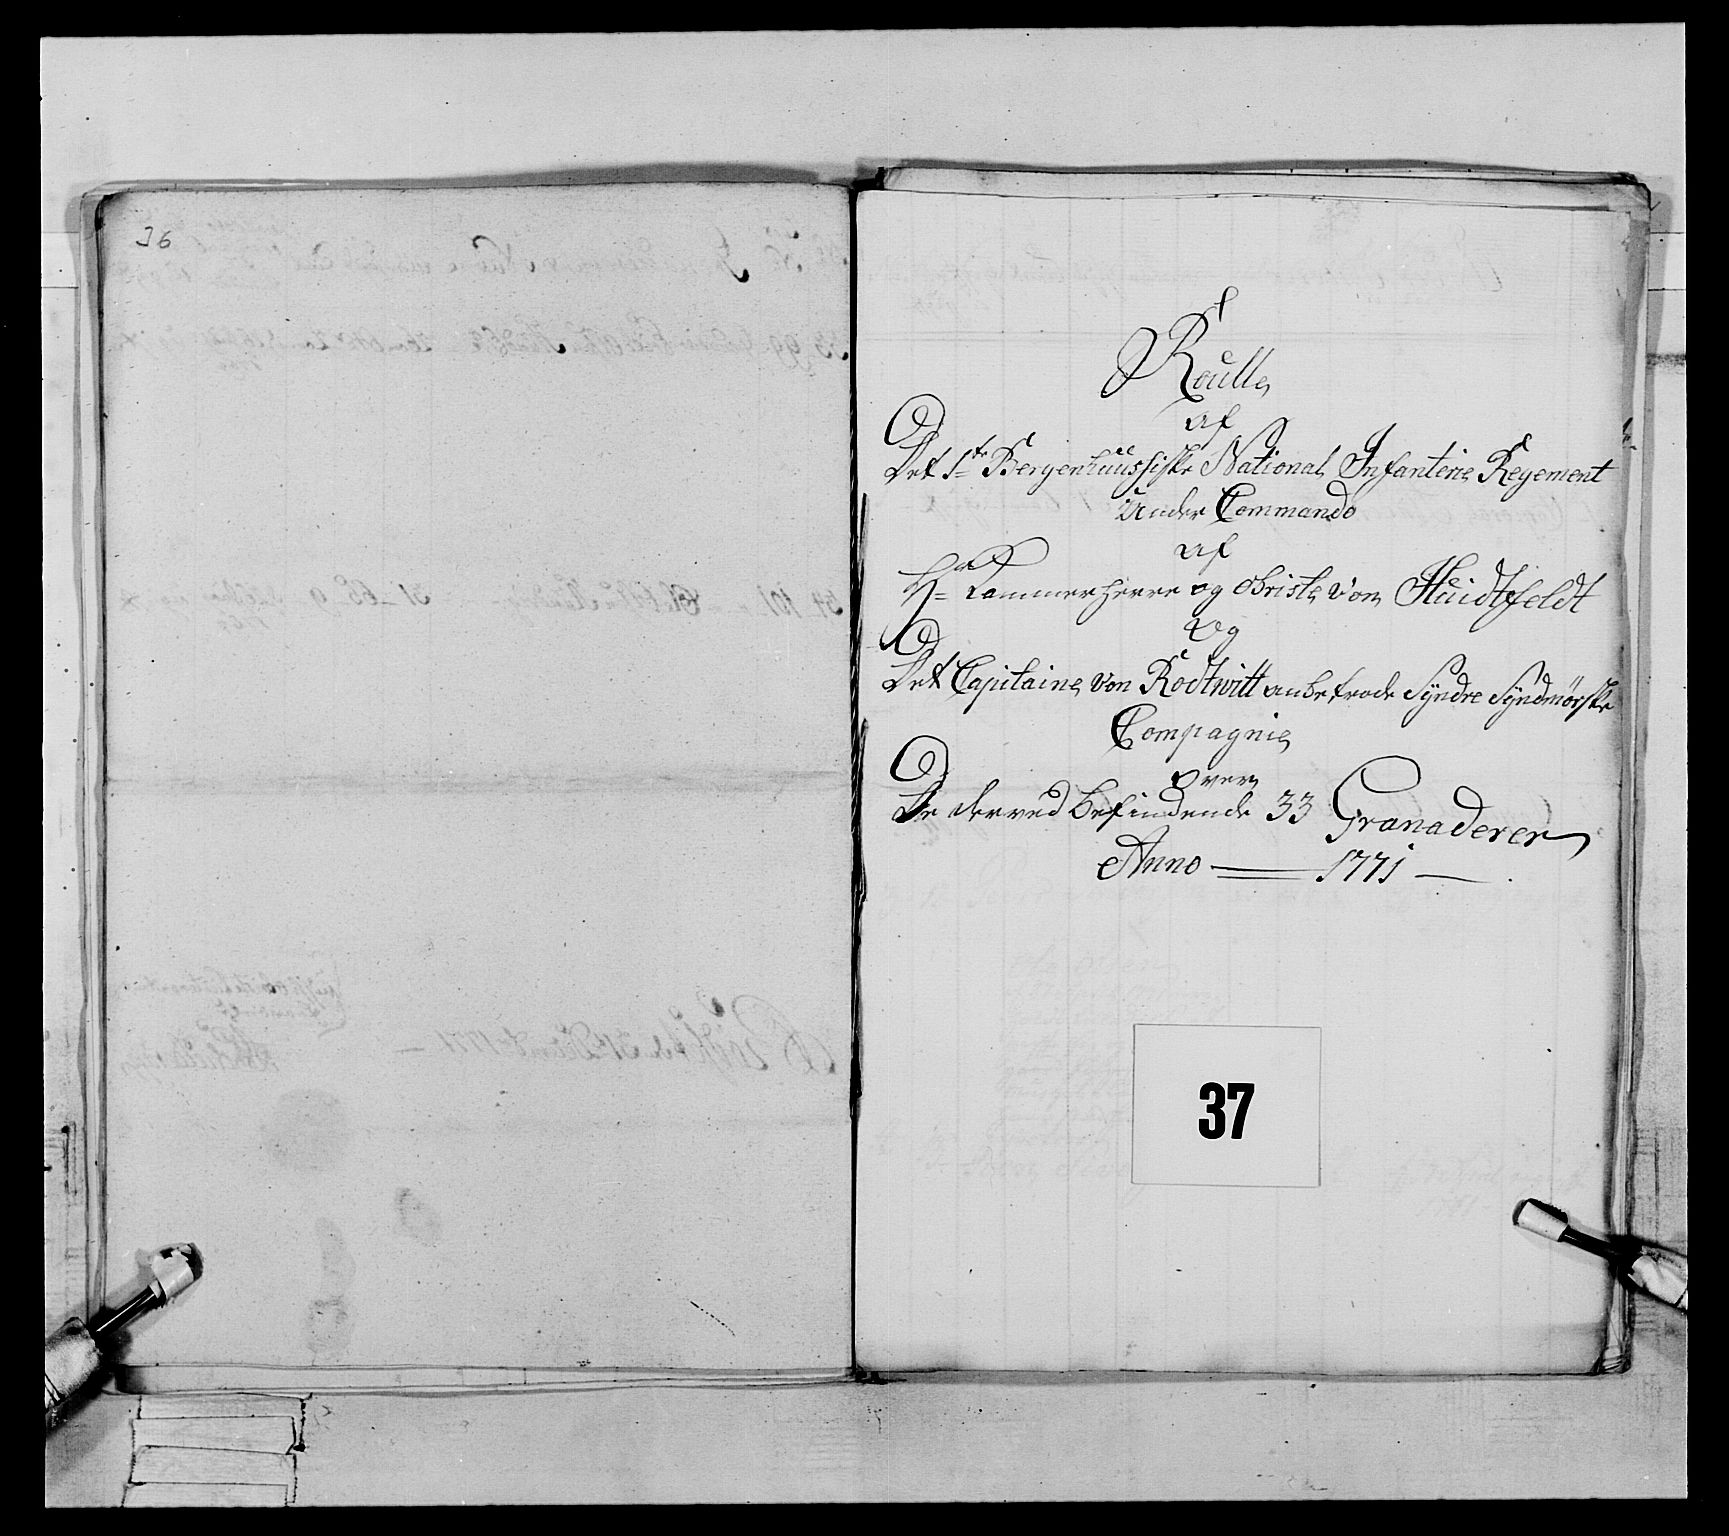 36
Roulle
af
Det 1te Bergenhuussiske National Infanterie Regement
Under Commando
af
Hr Kammerherre og Obriste von Huidtfeldt
Og
Det Capitaine von Rodtwitt anbetrode Syndre Syndmørske
Compagnie
Over
De derved befindende 33 Granaderer
Anno 1771
37